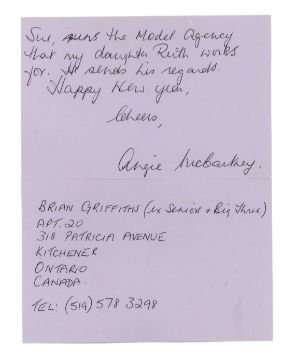 Sui, runs the Model Agency
that my daughter Ruth works
for. He sends his regards.
Happy New Year,
Cheers,
Angie McCartney.
BRIAN GRIFFITHS (ex Senior + Big Three)
APT. 20
318 PATRICIA AVENUE
KITCHENER
ONTARIO
CANADA.
TEL: (519) 578 3298